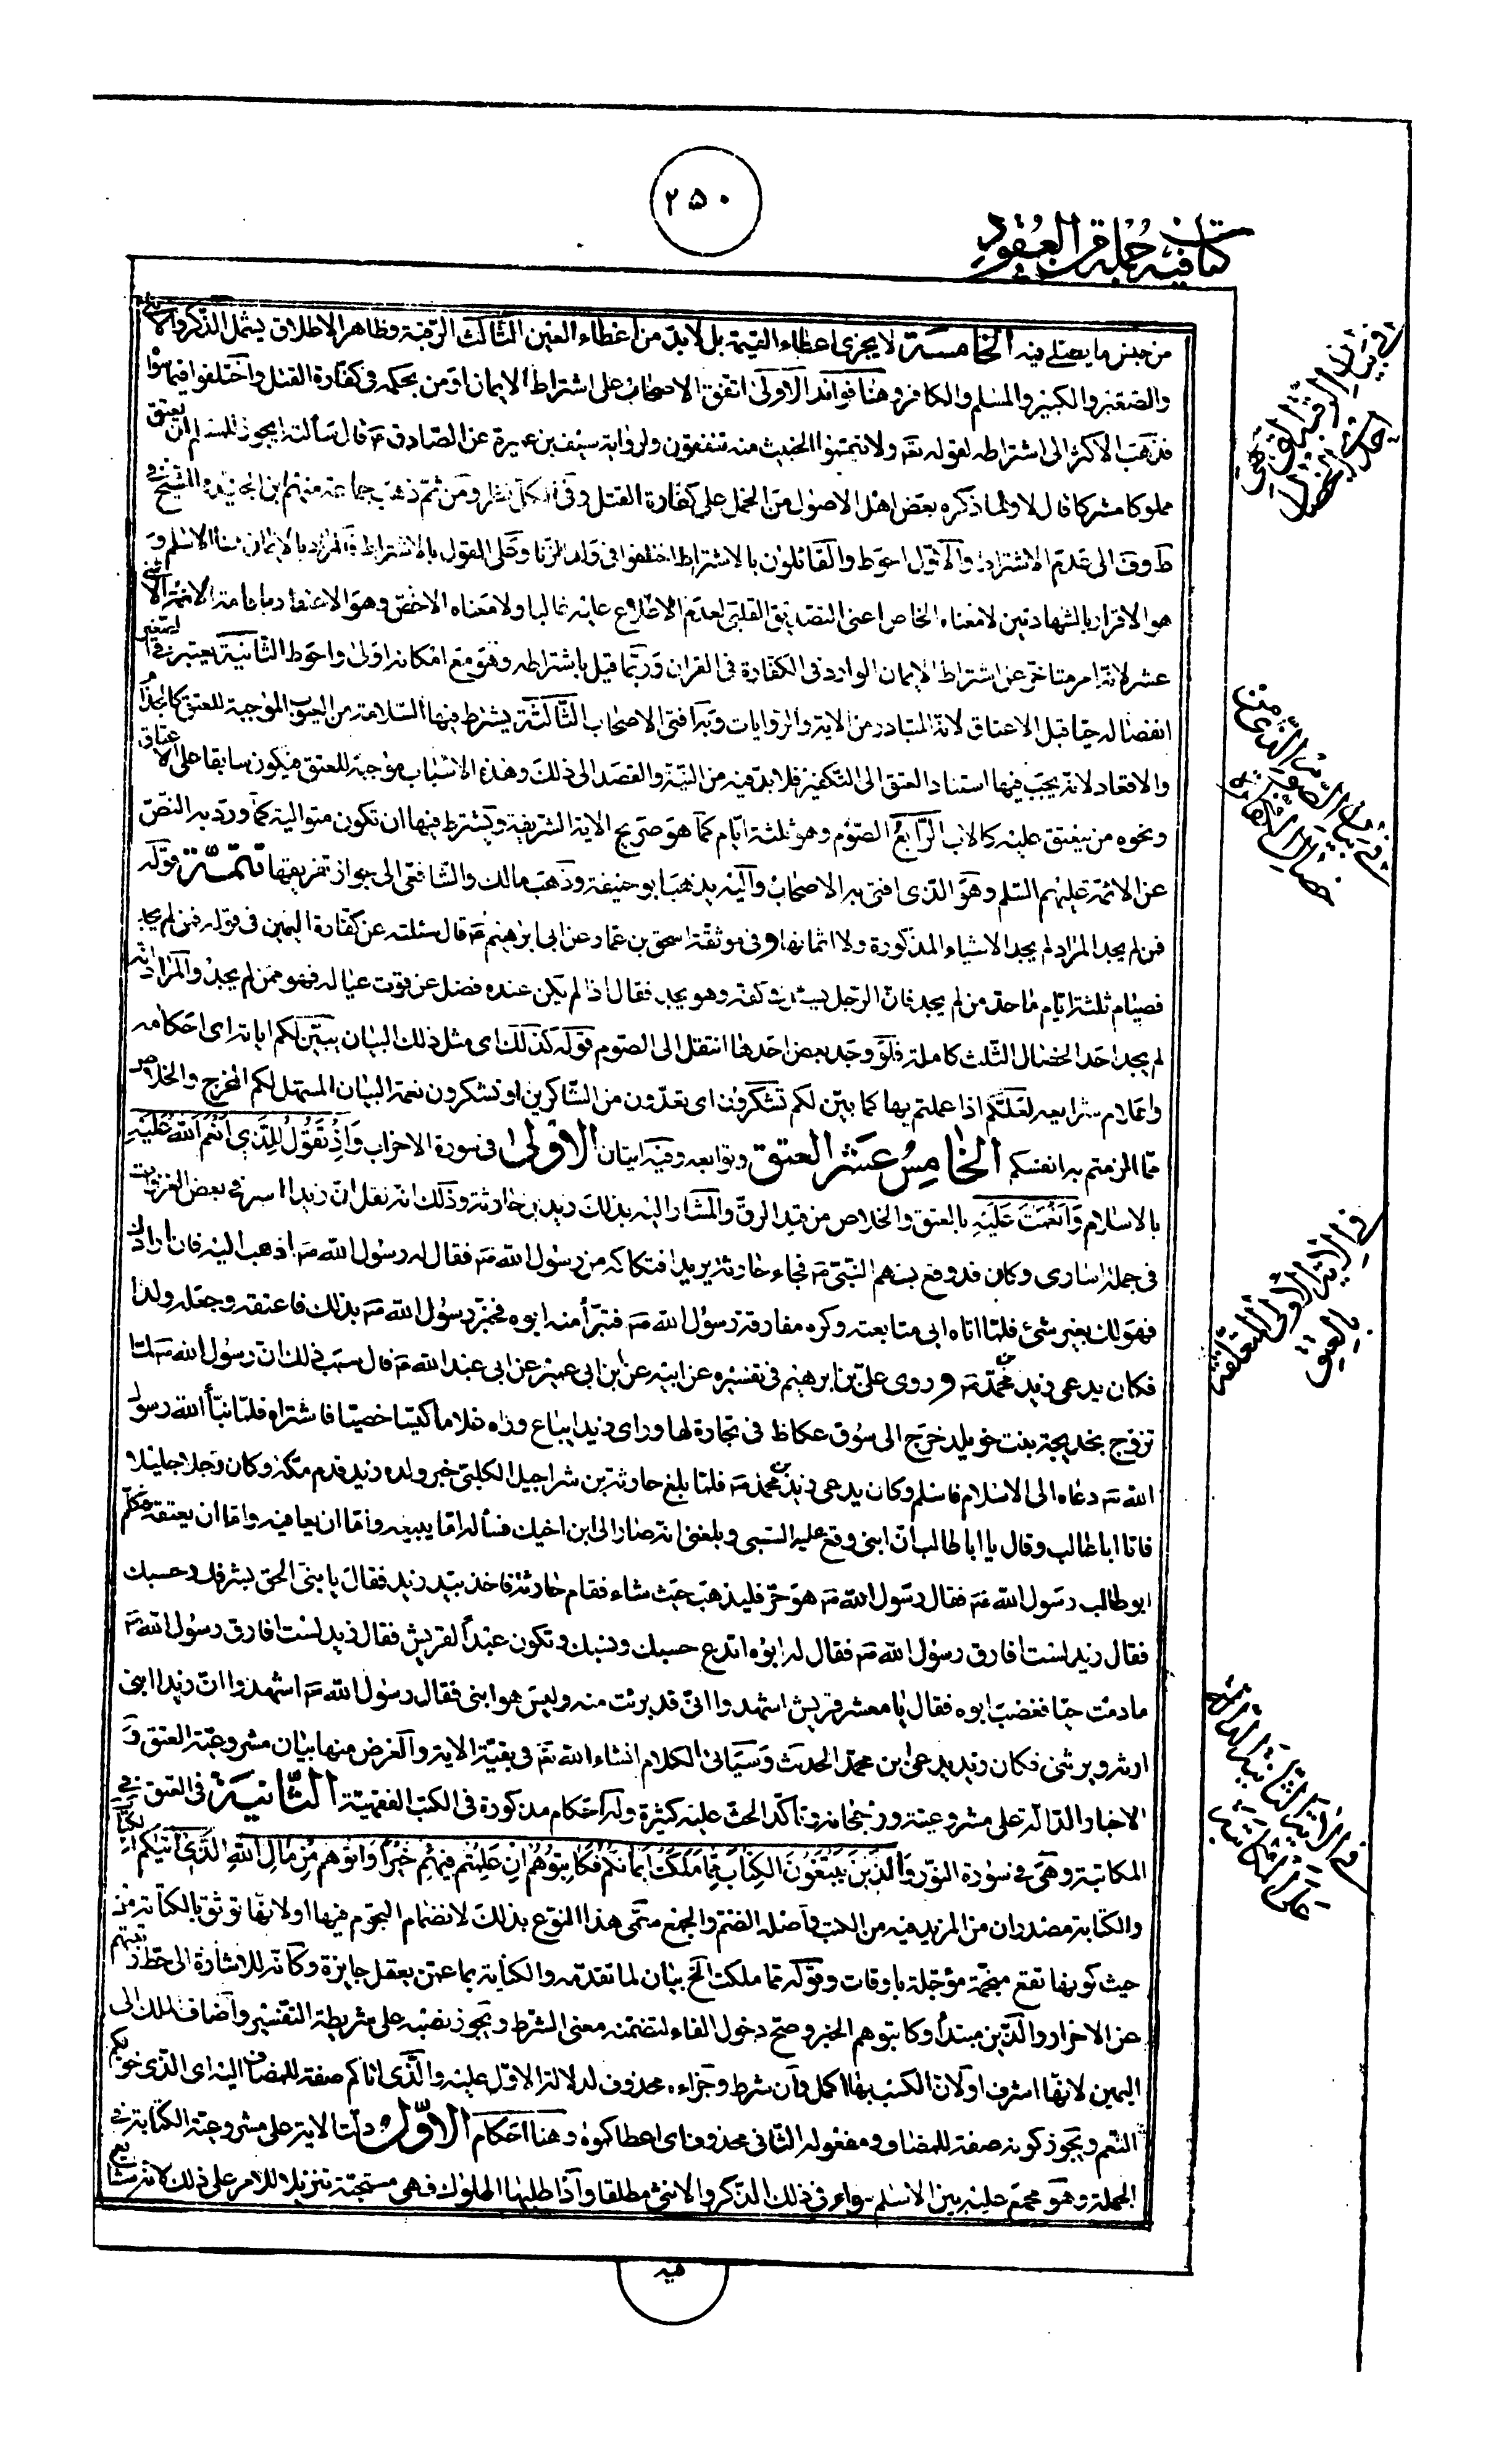 ٢٥٠
كتاب فيه جملة من العقود
من جنس ما يصلى فيه الخامسة لا يجزى اعطاء القيمة بل لابد من اعطاء العين الثالث الرقبة وظاهر الاطلاق يشمل الذكر والانثى
والصغير والكبير والمسلم والكافر وهنا فوائد الاولى اتفق الاصحاب على اشتراط الايمان او من بحكمه فى كفارة القتل واختلفوا فيما سواها
فذهب الاكثر الى اشتراطه لقوله تعالى ولا تيمموا الخبيث منه تنفقون ولرواية سيف بن عميرة عن الصادق ع قال سألته ايجوز للمسلم ان يعتق
مملوكا مشركا قال لا ولما ذكره بعض اهل الاصول من الحمل على كفارة القتل وفى الكل نظر ومن ثم ذهب جماعة منهم ابن الجنيد والشيخ فى
ط وف الى عدم الاشتراط والاول احوط والقائلون بالاشتراط اختلفوا فى ولد الزنا وعلى القول بالاشتراط فالمراد بالايمان هنا الاسلم و
هو الاقرار بالشهادتين لا معناه الخاص اعنى التصديق القلبى لعدم الاطلاع عليه غالبا ولا معناه الاخص وهو الاعتقاد بامامة الائمة الاثنى
عشر لانه امر متاخر عن اشتراط الايمان الوارد فى الكفارة فى القران وربما قيل باشتراطه وهو مع امكانه اولى واحوط الثانية يعتبر فى الصغير
انفصاله حيا قبل الاعتاق لانه المتبادر من الاية والروايات وبه افتى الاصحاب الثالثة يشترط فيها السلامة من العيوب الموجبة للعتق كالجذام
والاقعاد لانه يجب فيها استناد العتق الى التكفير فلابد فيه من النية والقصد الى ذلك وهذه الاسباب موجبة للعتق فيكون سابقا على الاعتاق
ونحوه من ينعتق عليه كالاب الرابع الصوم وهو ثلثة ايام كما هو صريح الاية الشريفة ويشترط فيها ان تكون متوالية كما ورد به النص
عن الائمة عليهم السلم وهو الذى افتى به الاصحاب واليه يذهب ابو حنيفة وذهب مالك والشافعى الى جواز تفريقها تتمة قوله
فمن لم يجد المراد لم يجد الاشياء المذكورة ولا اثمانها وفى موثقة اسحق بن عمار عن ابى ابرهيم ع قال سئلته عن كفارة اليمين فى قوله فمن لم يجد
فصيام ثلثة ايام ما حد من لم يجد فان الرجل يسئل فى كفه وهو يجد فقال اذا لم يكن عنده فضل عن قوت عياله فهو ممن لم يجد والمراد انه
لم يجد احد الخصال الثلث كاملة فلو وجد بعض احدها انتقل الى الصوم قوله كذلك اى مثل ذلك البيان يبين لكم اياته اى احكامه
واعلام شرايعه لعلكم اذا عملتم بها كما يبين لكم تشكرون اى تعدون من الشاكرين او تشكرون نعمة البيان المسهل لكم المخرج والخلاص
مما الزمتم به انفسكم الخامس عشر العتق وتوابعه وفيه ايتان الاولى فى سورة الاحزاب واذ تقول للذى انعم الله عليه
بالاسلام وانعمت عليه بالعتق والخلاص من قيد الرق والمشار اليه بذلك زيد بن حارثة وذلك انه نقل ان زيدا اسر فى بعض الغزوات
فى جملة اسارى وكان قد وقع بسهم النبى ص فجاء حارثة يريد افتكاكه من رسول الله ص فقال له رسول الله ص اذهب اليه فان ارادك
فهو لك بغير شئ فلما اتاه ابى متابعته وكره مفارقة رسول الله ص فتبرأ منه ابوه فخبر رسول الله ص بذلك فاعتقه وجعله ولدا
فكان يدعى زيد بن محمد ص وروى على بن ابرهيم فى تفسيره عن ابيه عن ابن ابى عمير عن ابى عبد الله ع قال سبب ذلك ان رسول الله ص لما
تزوج بخديجة بنت خويلد خرج الى سوق عكاظ فى تجارة لها وراى زيدا يباع وراه غلاما كيسا خصيتا فاشتراه فلما نبأ الله رسول
الله ص دعاه الى الاسلام فاسلم وكان يدعى زيد بن محمد ص فلما بلغ حارثة بن شراحيل الكلبى خبر ولده زيد قدم مكة وكان رجلا جليلا
فاتا ابا طالب وقال يا ابا طالب ان ابنى وقع عليه السبى وبلغنى انه صار الى ابن اخيك فسأله اما يبيعه واما ان يعاينه واما ان يعتقه فكلم
ابو طالب رسول الله ص فقال رسول الله ص هو حر فليذهب حيث شاء فقام حارثة فاخذ بيد زيد فقال يا بنى الحق بشرفك وحسبك
فقال زيد لست افارق رسول الله ص فقال له ابوه اتدع حسبك ونسبك وتكون عبدا لقريش فقال زيد لست افارق رسول الله ص
ما دمت حيا فغضب ابوه فقال يا معشر قريش اشهدوا انى قد برئت منه وليس هو ابنى فقال رسول الله ص اشهدوا ان زيدا ابنى
ارثه ويرثنى فكان زيد يدعى بن محمد الحديث وسياتى الكلام انشاء الله تع فى بقية الاية والغرض منها بيان مشروعية العتق و
الاخبار الدالة على مشروعيته ورجحانه وتأكد الحث عليه كثيرة وله احكام مذكورة فى الكتب الفقهية الثانية فى العتق فى
المكاتبة وهى فى سورة النور والذين يبتغون الكتاب مما ملكت ايمانكم فكاتبوهم ان علمتم فيهم خيرا واتوهم من مال الله الذى اتيكم الكتاب
والكتابة مصدران من المزيد فيه من الكتب واصله الضم والجمع سمى هذا النوع بذلك لانضمام النجوم فيها او لانها توثق بالكتابة من
حيث كونها تقع منجمة مؤجلة باوقات وقوله مما ملكت الخ بيان لما تقدمه والكناية بما عمن يعقل جايزة وكأنه للاشارة الى حط رتبتهم
عن الاحرار والذين مبتدأ وكاتبوهم الخبر وصح دخول الفاء لتضمنه معنى الشرط ويجوز نصبه على شريطة التفسير واضاف الملك الى
اليمين لانها اشرف او لان الكسب بها اكمل وان شرط وجزاءه محذوف لدلالة الاول عليه والذى اتاكم صفة للمضاف اليه اى الذى خولكم
النعم ويجوز كونه صفة للمضاف ومفعوله الثانى محذوف اى اعطاكموه وهنا احكام الاول دلت الاية على مشروعية الكتابة فى
الجملة وهو مجمع عليه بين الاسلم سواء فى ذلك الذكر والانثى مطلقا واذا طلبها المملوك فهى مستحبة تنزيلا للامر على ذلك لانه شايع
فيه
فى بيان الرقبة التى هى
احدى الخصال
فى بيان الصوم الذى من
خصال الكفارة
فى الاية الاولى المتعلقة
بالعتق
فى الاية الثانية الدالة
على المكاتبة